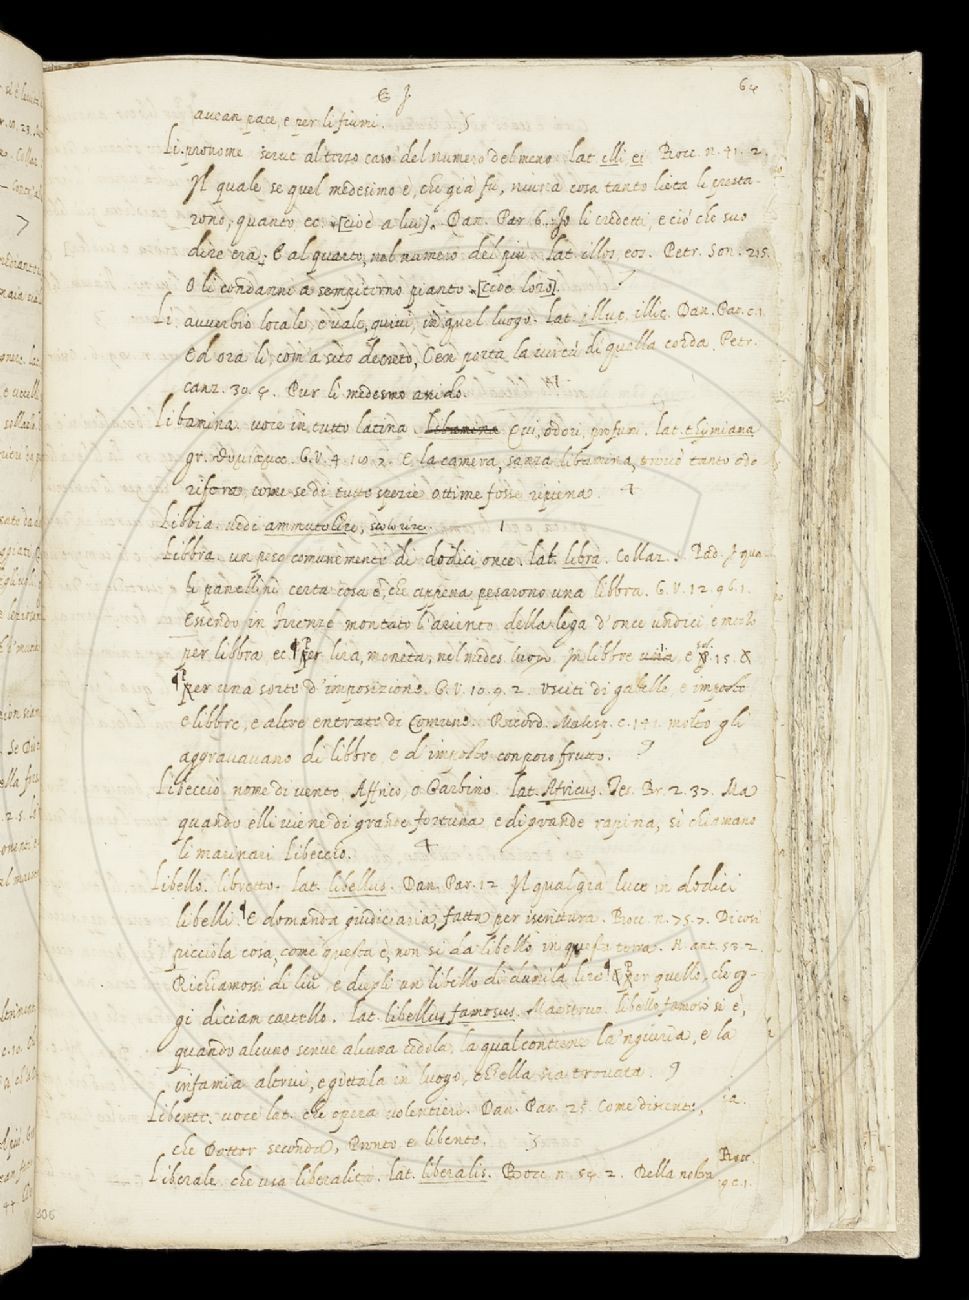 64
auean pace, e per li fiumi. 5
Li. pronome serue al terzo caso del numero del meno. lat. illi, ei. Bocc. n. 41. 2.
Il quale se quel medesimo è, che già fù, niuna cosa tanto lieta li presta-
rono, quanto, ec. [cioè a lui]. Dan. Par. 6. Io li credetti, e ciò che suo
dire era; E al quarto, nel numero del più. lat. illos, eos. Petr. Son. 215.
O li condanni a sempiterno pianto. [cioè loro].
Li auuerbio locale, e vale, quiui, in quel luogo. lat. illuc, illic. Dan. Par. c. 1.
Ed ora li, com'a sito decreto, Cen porta la uirtù di quella corda. Petr.
canz. 30. 4. Pur lì medesmo assido.
Libamina. uoce in tutto latina. Libamina odori, profumi. lat. thymiama
gr. θυμίαμα. G. V. 4. E la camera, sanza libamina, tanto odo
rifera, come se di tutto spezie ottime fosse ripiena. 4
Libbia. uedi ammutolire, 1
Libbra. un peso comunemente di dodici once. lat. libra. Collaz. S. Pad. I qua-
li panellini certa cosa è, che appena pesarono una libbra. G. V. 12. 96. 1.
Essendo in Firenze montato l'ariento della lega d'once undici e mezzo
per libbra ec. ¶ Per lira, moneta, nel medes. luogo. In libbre e 15.
¶ Per una sorte d'imposizione. G. V. 10. 9. 2. Usciti di gabelle, e imposte
e libbre, e altre entrate di Comune. Ricord. Malesp. c. 141. molto gli
aggrauauano di libbre e d'imposte con poco frutto. 7
Libeccio. nome di uento, Affrico, o Garbino. lat. Africus. Tes. Br. 2. 37. Ma
quando elli uiene di grande fortuna e di grande rapina, si chiamano
li marinari libeccio. 4
Libello. libretto. lat. libellus. Dan. Par. 12. Il qual già luce in dodici
libelli. ¶ E domanda giudiciaria, fatta per iscrittura. Bocc. n. 75. 7. Di così
picciola cosa, come questa è, non si dà libello in questa terra. N. ant. 53. 2.
Richiamossi di lui, e diegli un libello di dumila lire. ¶ & Per quello, che og-
gi diciam cartello. lat. libellus famosus. Maestruz. libello famoso si è,
quando alcuno scriue alcuna cedola, la qual contiene la 'ngiuria, e la
infamia altrui, e gittala in luogo, ch'ella sia trouata. 7
Libente. uoce lat. che opera uolentieri. Dan. Par. 25. Come discente,
che Dottor seconda, Pronto e libente. 3
Liberale. che usa liberalità. lat. liberalis. Bocc. n. 54. 2. Della nostra
Bocc.
306